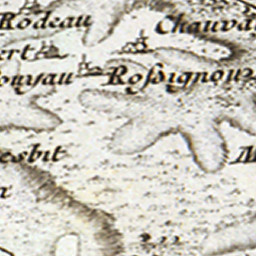 Rodeau
Chauva
ert
ouyau
Roſsignou
esbit
x